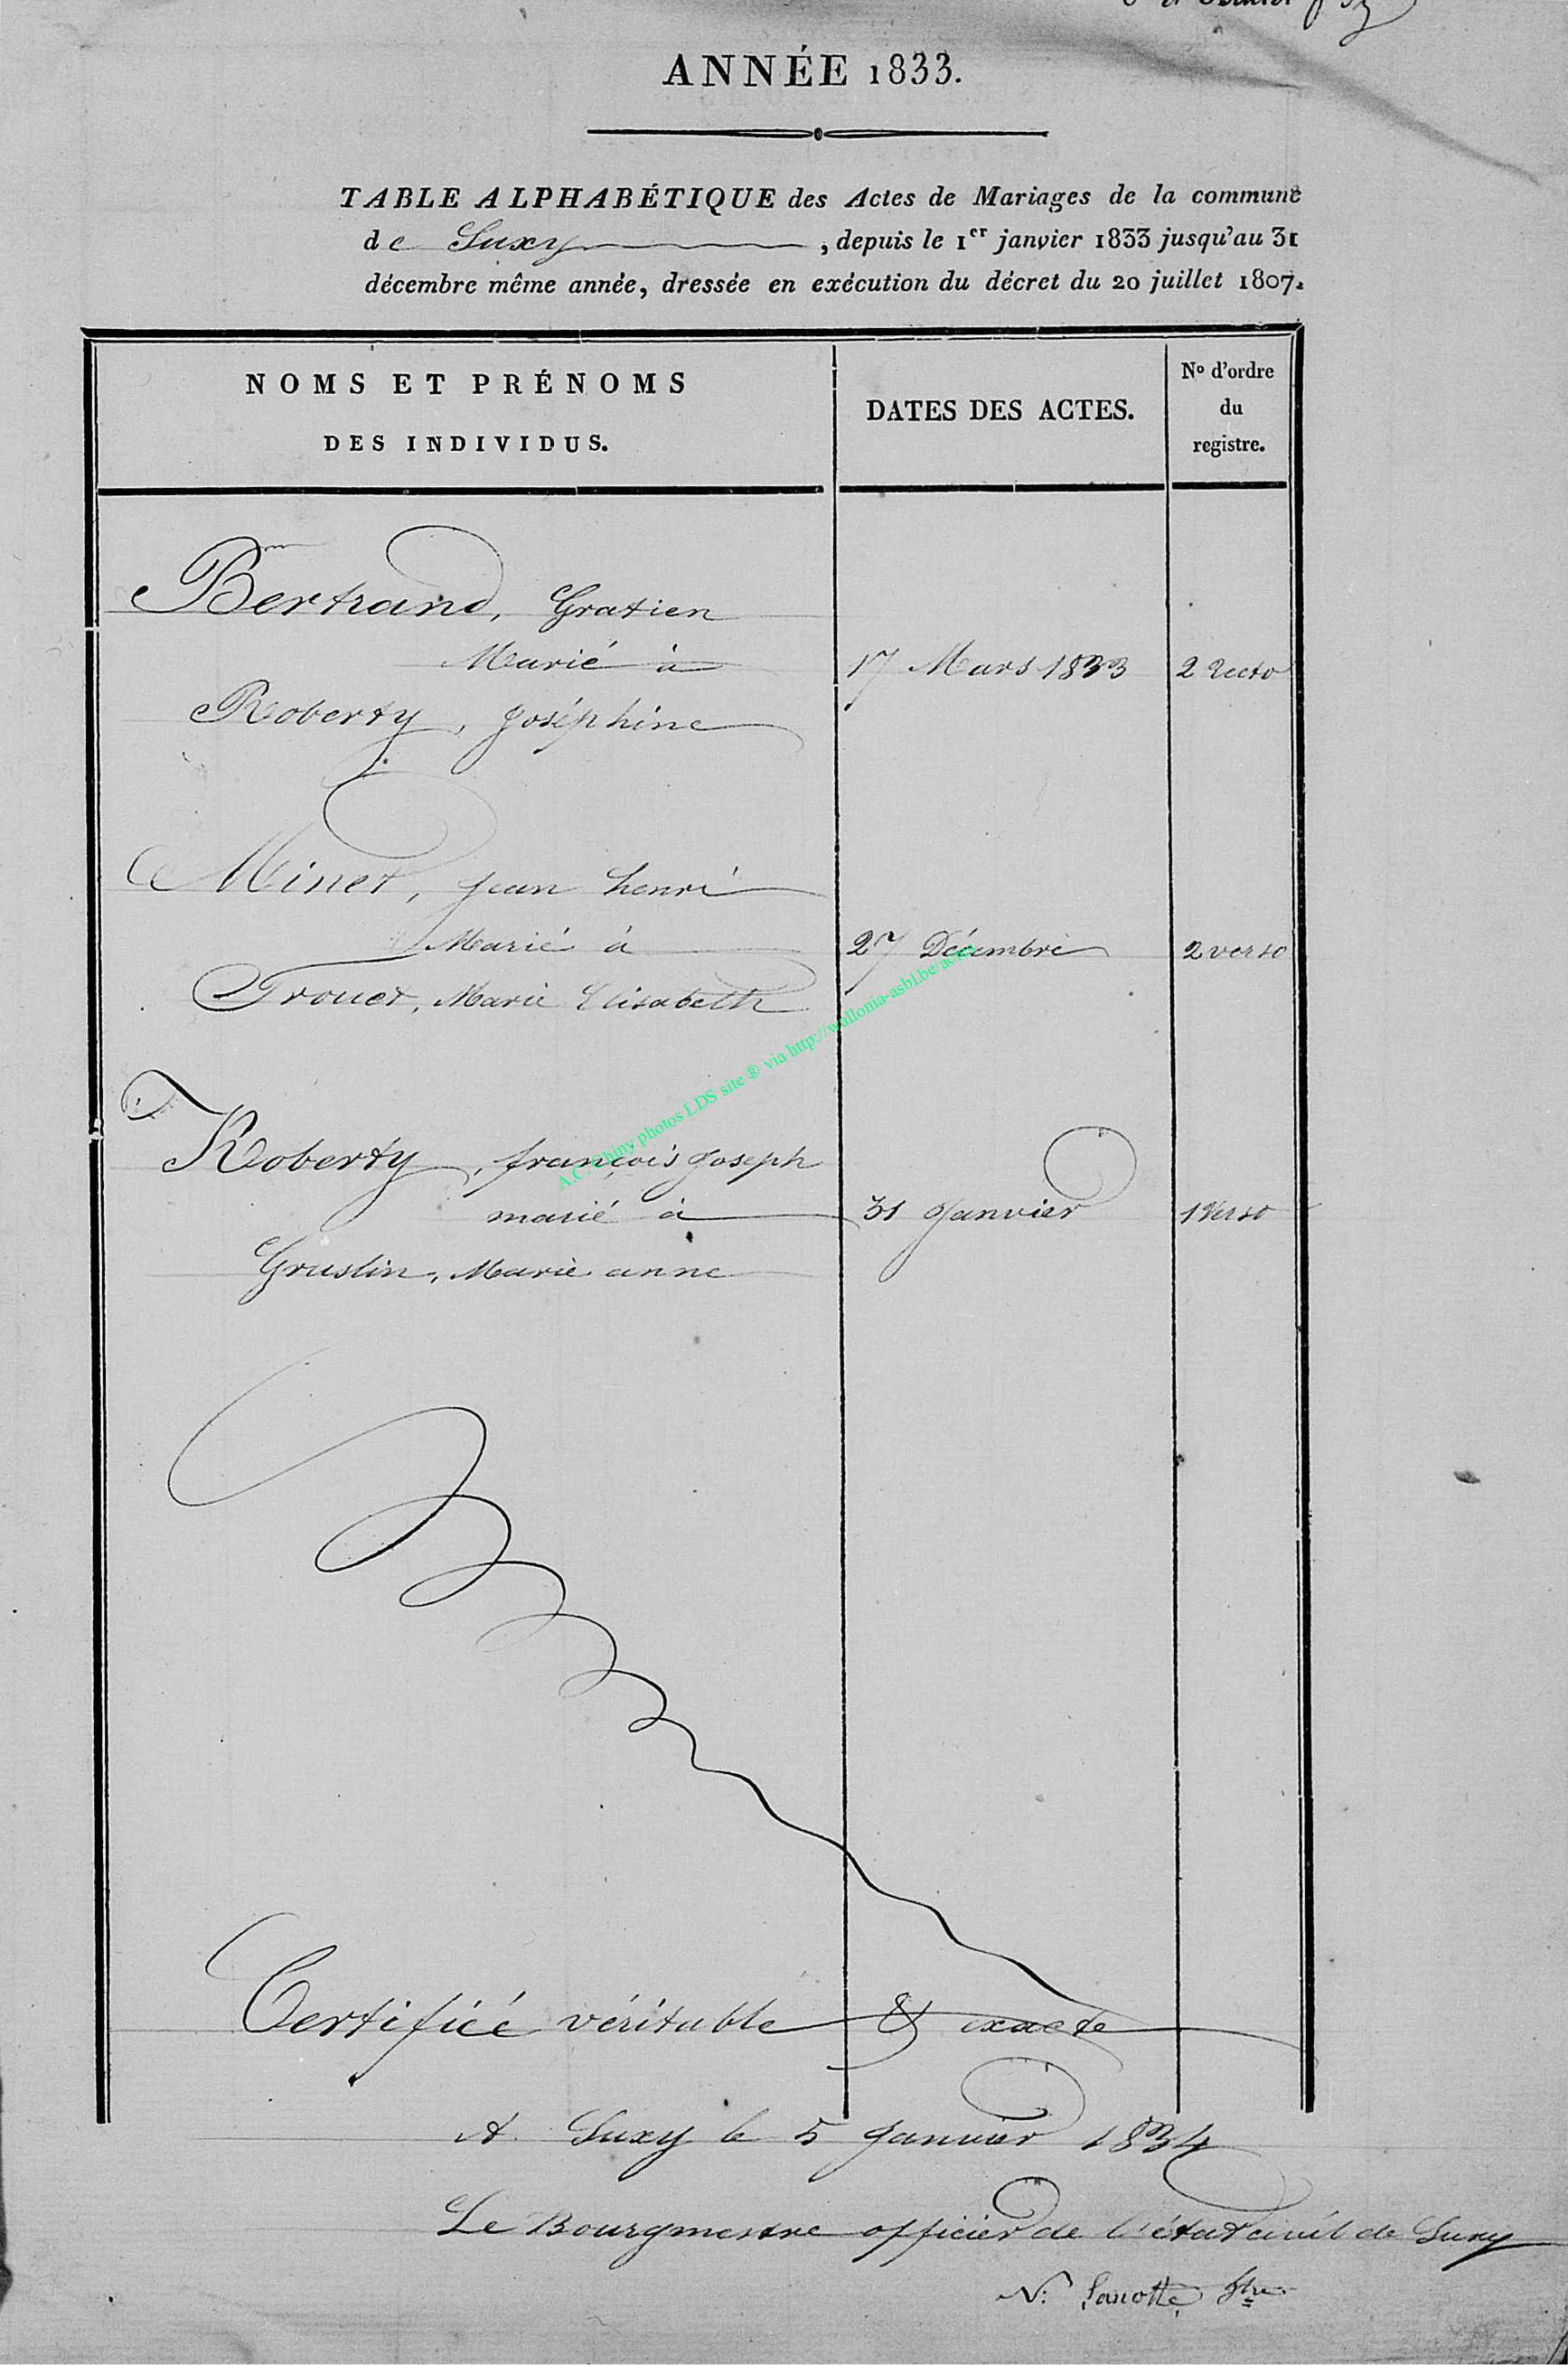 ANNÉE 1833.
TABLE ALPHABÉTIQUE des Actes de Mariages de la commune
de Suxy, depuis le 1er janvier 1833 jusqu'au 31
décembre même année, dressée en exécution du décret du 20 juillet 1807.
NOMS ET PRÉNOMS
DES INDIVIDUS.
DATES DES ACTES.
No d'ordre
du
registre.
Bertrand, Gratien
Marié à
17 Mars 1833
2 recto
Roberty, Joséphine
Minet, Jean henri
Marié à
27 Décembre
2 verso
Trouet, Marie Elisabeth
A.C. Chiny photos LDS site ® via http://wallonia-asbl.be/actes
Roberty, françois Joseph
marié à
31 Janvier
1 Verso
Gruslin, Marie anne
Certifiée véritable & exacte
A Suxy le 5 Janvier 1834
Le Bourgmestre officier de l'état civil de Suxy
N: